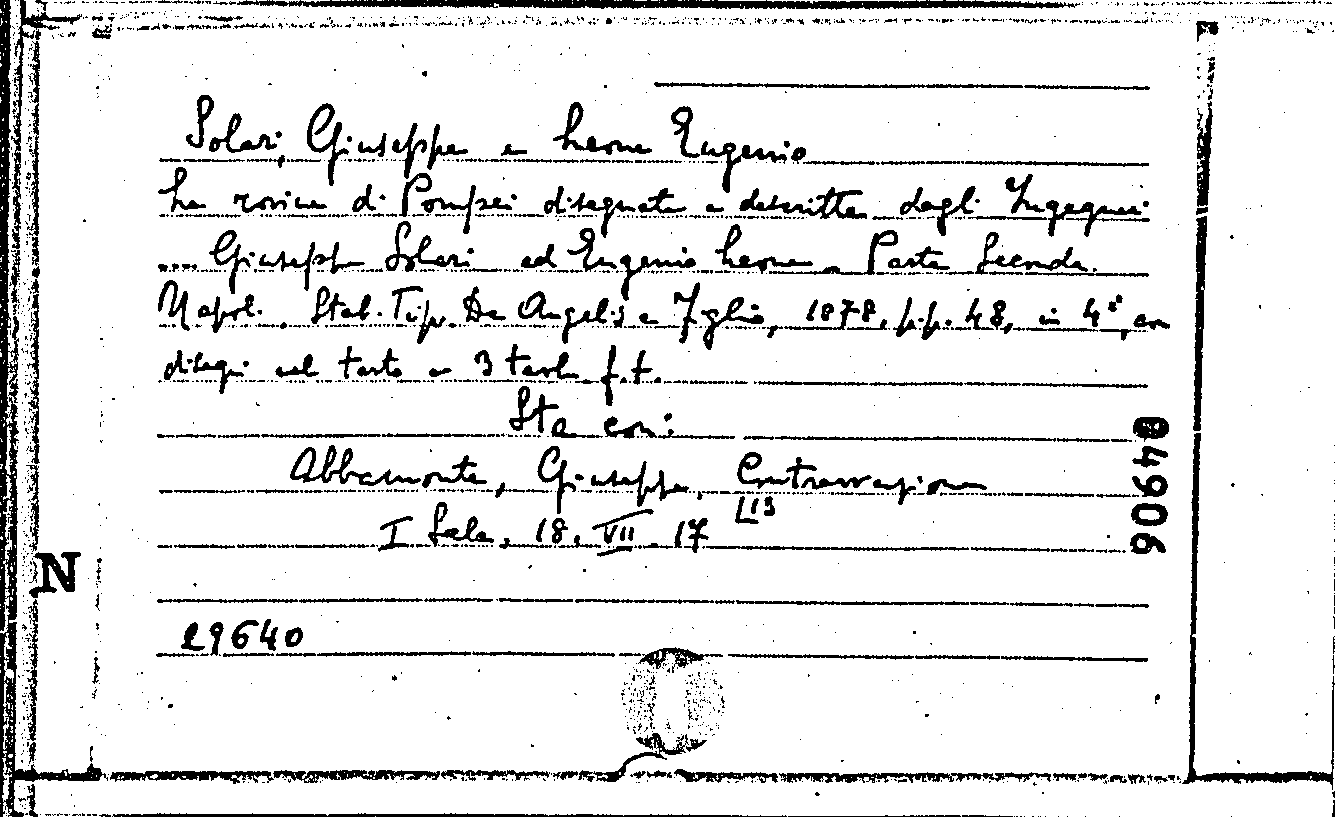 Solari, Giuseppe e Leone Eugenio
La rovine di Pompei disegnate e descritte dagli Ingegneri
.... Giuseppe Solari ed Eugenio Leone. Parte Seconda.
Napoli. Stab. Tip. De Angelis e Figlio, 1878. p.p. 48, in 4°, con
disegni nel testo e 3 tavole f.t.
Sta con:
Abbamonte, Giuseppe,
I Sala. 18. VII. 17 L13
29640
04906
N